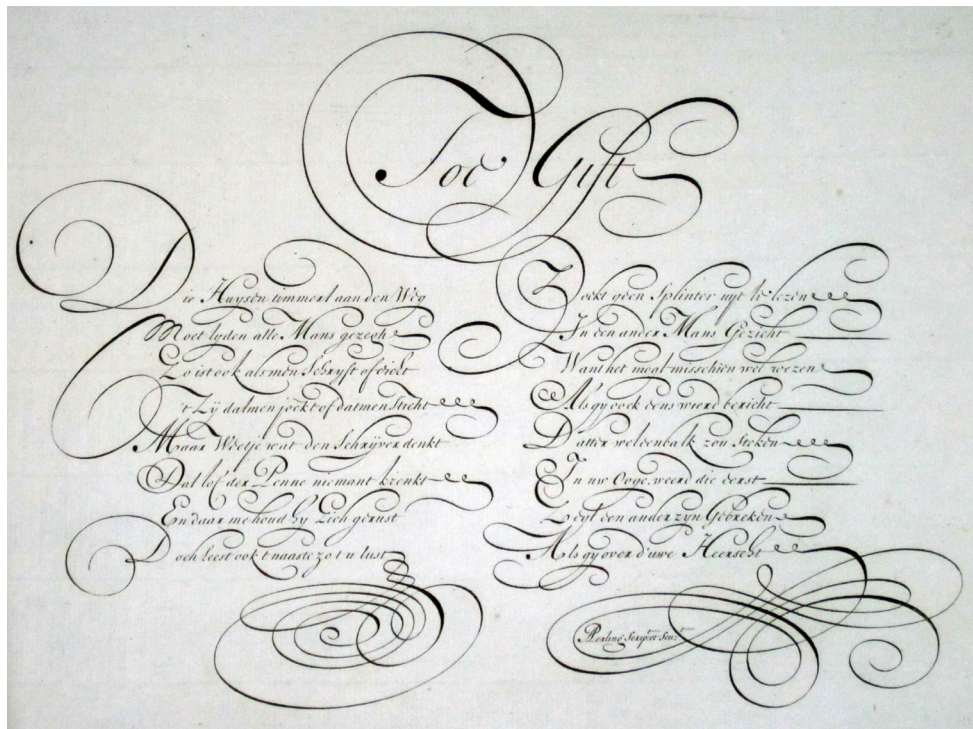 Toe Gift
Die Huysen timmert aan den Weg
Moet lyden alle Mans gezegh
Zo ist ook als men Schryft of dicht
't Zy datmen jockt of datmen Sticht
Maar Weetje wat den Schrijver denkt
Dat lof der Penne niemant krenkt
En daar me houd hy Zich gerust
Doch leest ook t naaste zo t u lust
Zoekt geen Splinter uyt te lezen
In den ander Mans Gezicht
Want het mogt misschien wel wezen
Als gy oock eens wierd bericht
Datter wel een balk zou Steken
In uw Ooge, weerd die eerst
Zegt den ander zyn Gebreken
Als gy over d'uwe Heerscht
APerling Scripset Sculpt